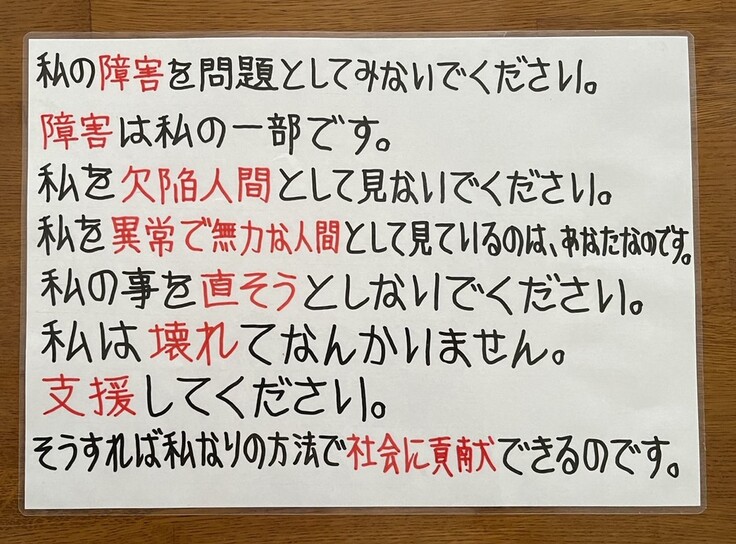 私の障害を問題としてみないでください。
障害は私の一部です。
私を欠陥人間として見ないでください。
私を異常で無力な人間として見ているのは、あなたなのです。
私の事を直そうとしないでください。
私は壊れてなんかいません。
支援してください。
そうすれば私なりの方法で社会に貢献できるのです。